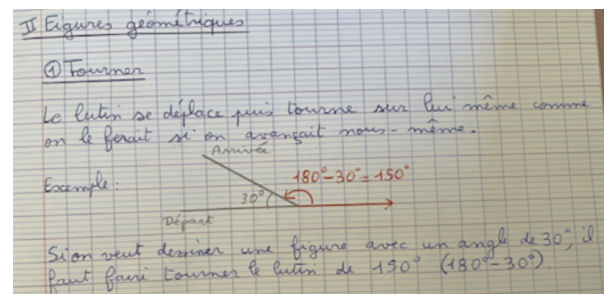 II Figures géométriques
① Tourner
Le lutin se déplace puis tourne sur lui même comme
on le ferait si on avançait nous-même.
Arrivée
Exemple :
180° - 30° = 150°
30°
Départ
Si on veut dessiner une figure avec un angle de 30°, il
faut faire tourner le lutin de 150° (180° - 30°)